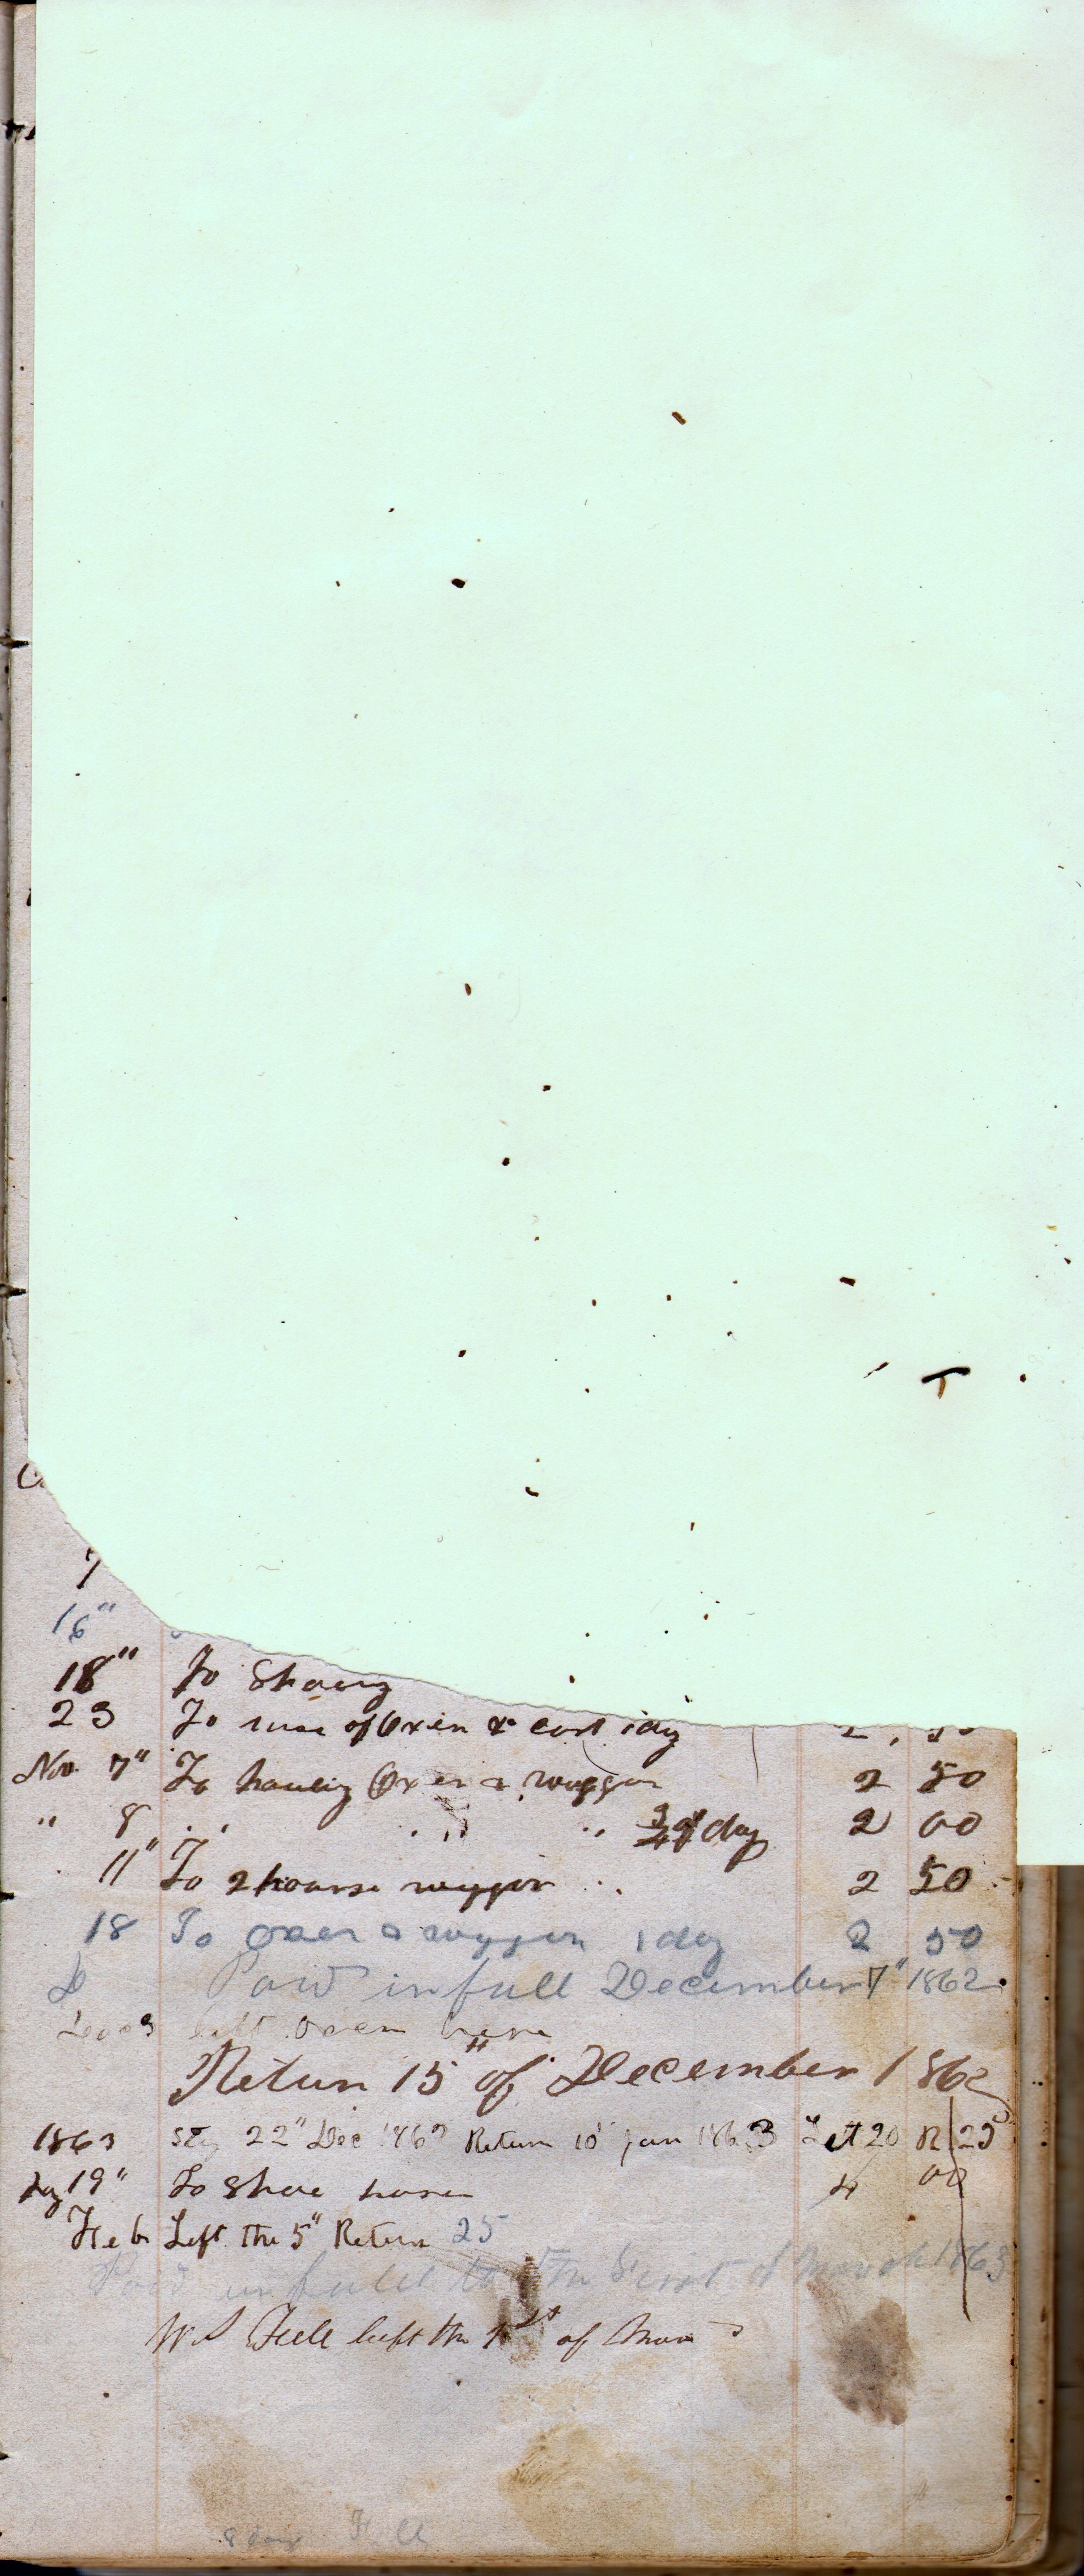 7
16"
18" To Shoeing
23 To use of Oxen & cart 1 day 2.50
Nov 7" To hauling Oxen & waggon 2 50
" 8 " " " 3/4 of day 2 00
11" To 2 hourse waggon " 2 50
18 To oxen & waggon 1 day 2 50
Paid in full December 7" 1862.
Dec 3 left oxen here
Return 15" of December 1862
1863 22" Dec 1862 Return 10" Jan 1863 20 R 25
19" To Shoe horse 4 00
Feb Left the 5" Return 25
Paid in full to the First of March 1863
W S Fell left the 1st of
8 days Fell